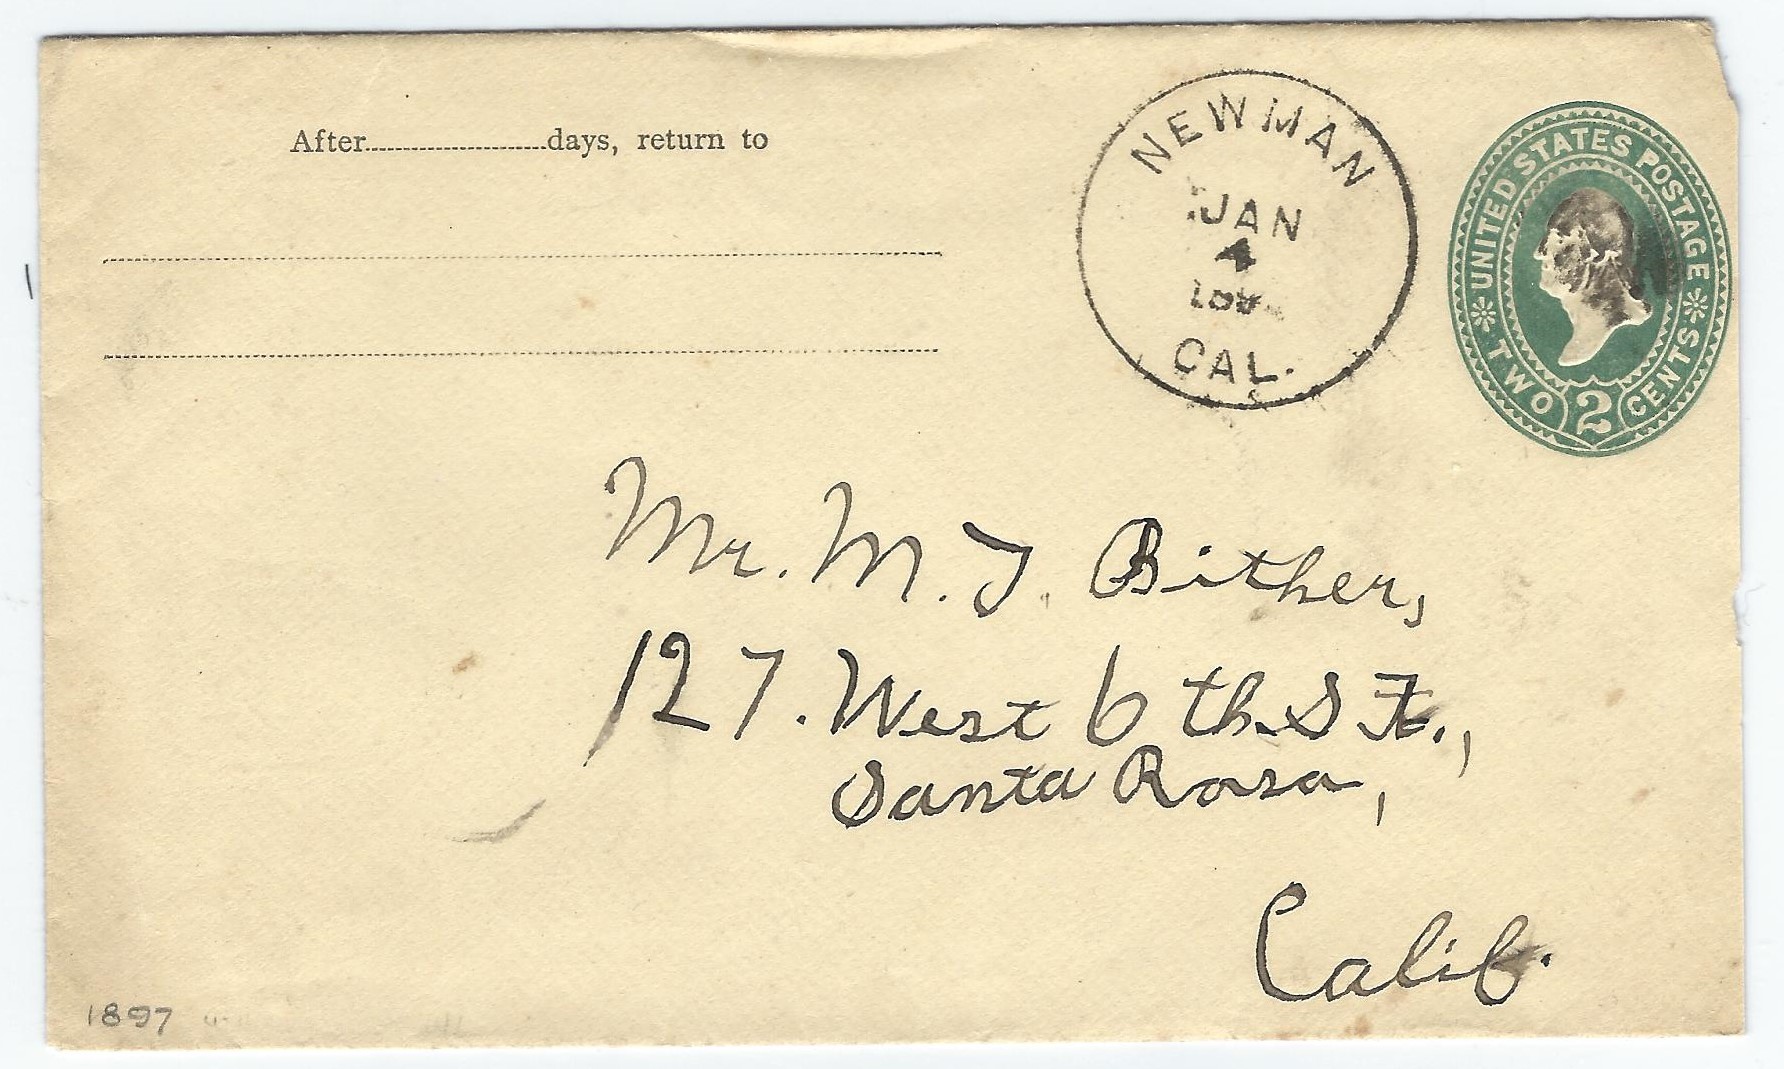 After........................days, return to
NEWMAN
JAN
4
CAL.
UNITED STATES POSTAGE
TWO 2 CENTS
Mr. M. J. Bither,
127. West 6th. St.,
Santa Rosa,
Calif.
1897